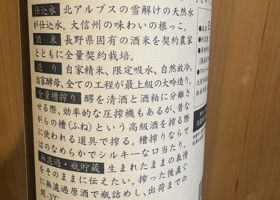 仕込水 北アルプスの雪解けの天然水
が仕込水。大信州の味わいの根っこ。
酒米 長野県固有の酒米を契約農家
とともに全量契約栽培。
造り 自家精米、限定吸水、自然放冷、
自家酵母、全ての工程が最上級の大吟造り。
全量槽搾り 醪を清酒と酒粕に分離さ
せる際、効率的な圧搾機もあるが、昔な
がらの槽(ふね)という高級酒を搾る際
に使われる道具で搾る。槽搾りならで
はのなめらかでシルキーな口当たり。
無濾過・瓶貯蔵 生まれたままの表情
をそのままに伝えたい。搾った後直ぐ
に無濾過原酒で瓶詰めし、出荷までの
間、